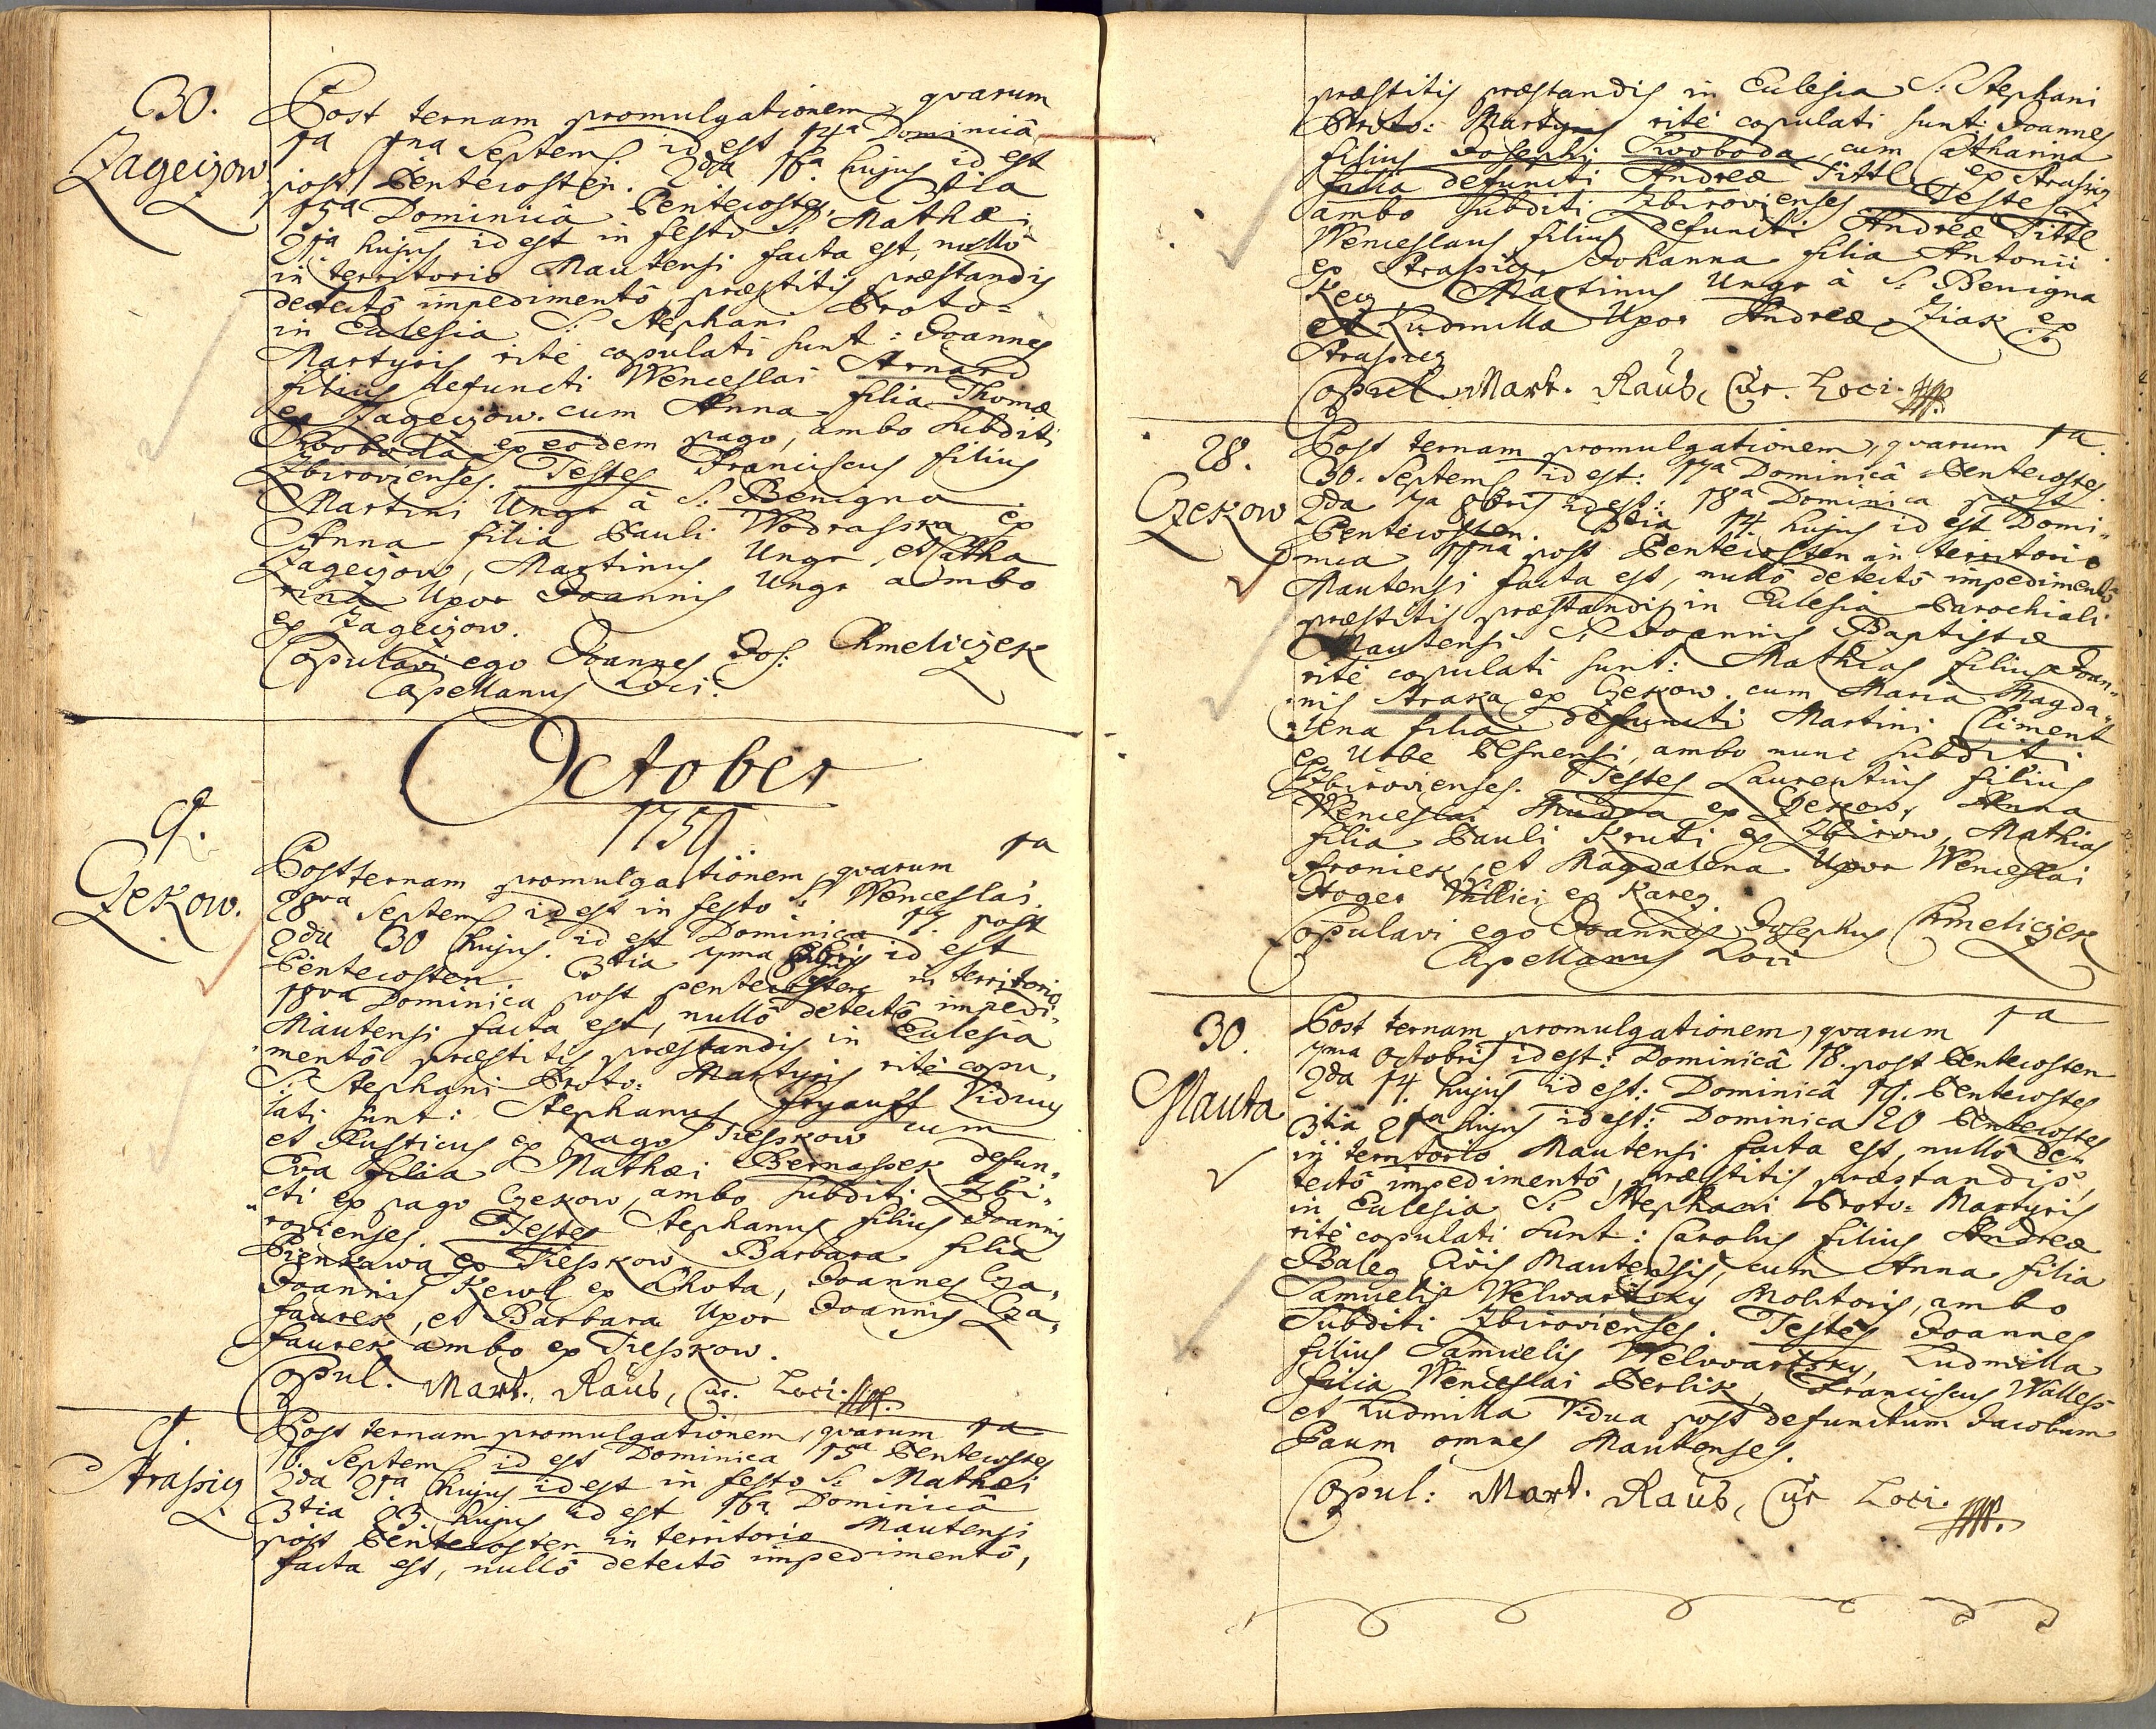 30.
Zageczow
Post ternam promulgationem, qvarum
1a 9na Septemb. id est 14a Dominicâ
post Pentecosten. 2da 16a hujus id est
15a Dominicâ Pentecostes. 3tia
21a hujus id est in festo S. Mathæi
in territorio Mautensi facta est, nullô
detectô impedimentô, præstitis præstandis
in Eclesia S: Stephani Proto=
Martyris ritè copulati sunt: Joannes
filius defuncti Wenceslai Arnard
ex Zageczow. cum Anna filia Thomæ
Swoboda ex eodem pago, ambo subditi
Zbirovienses. Testes Franciscus filius
Martini Ungr à S. Benigna
Anna filia Pauli Wodrasska ex
Zageczow, Martinus Ungr, et Catha
rina Uxor Joannis Ungr ambo
ex Zageczow.
Copulavi ego Joannes Jos: Chmeliczek
Capellanus Loci.
October
1759
9.
Czekow.
Post ternam promulgationem, qvarum 1a
28va Septemb. id est in festo S. Wenceslai.
2da 30 hujus. id est Dominica 17. post
Pentecosten. 3tia 7ma 8bris id est
18va Dominica post pentecosten in territorio
Mautensi facta est, nullô detectô impedi„
mentô præstitis præstandis in Eclesia
S: Stephani Proto= Martyris ritè copu„
lati sunt: Stephanus Fryauff Viduus
et Rusticus ex pago Tiesskow cum
Eva filia Mathæi Bernassek defun„
cti ex pago Czekow, ambo subditi Zbi„
rovienses. Testes Stephanus filius Joannis
Pienkawa ex Tiesskow, Barbara filia
Joannis Kewl ex Lhota, Joannes Cza„
faurek, et Barbara Uxor Joannis Cza„
faurek ambo ex Tiesskow.
Copul. Mart. Raub, Cur. Loci.
9.
Strassicz
Post ternam promulgationem, qvarum 1a
16. Septemb. id est Dominica 15a Pentecostes
2da 21a hujus id est in festo S. Mathæi
3tia 23 hujus id est 16a Dominicâ
post Pentecosten in territorio Mautensi
facta est, nullô detectô impedimentô,
præstitis præstandis in Eclesia S: Stephani
Proto= Martyris ritè copulati sunt: Joannes
filius Josephi Swoboda, cum Catharina
filia defuncti Andreæ Tittl ex Strassicz
ambo subditi Zbirovienses. Testes
Wenceslaus filius defuncti Andreæ Tittl
ex Strassicz, Johanna filia Antonii
Keg, Martinus Ungr à S: Benigna
et Ludmilla Uxor Andreæ Ziak ex
Strassicz
Copul. Mart. Raub, Cur. Loci.
28.
Czekow
Post ternam promulgationem, qvarum 1a
30. Septemb. id est: 17a Dominicâ Pentecostes.
2da 7a 8bris id est: 18a Dominica post
Pentecosten. 3tia 14 hujus id est Domi„
nica 19na post Pentecosten in territorio
Mautensi facta est, nullô detectô impedimentô
præstitis præstandis in Eclesia Parochiali
Mautensi S. Joannis Baptistæ
ritè copulati sunt: Mathias filius Joan„
nis Straka ex Czekow. cum Maria Magda„
lena filia defuncti Martini Climent
ex Urbe Plsnensi, ambo nunc subditi
Zbirovienses. Testes Laurentius filius
Wenceslai Mudra ex Czekow, Anna
filia Pauli Kruti ex Zbirow, Mathias
Froniek, et Magdalena Uxor Wenceslai
Hoger Villici ex Karez.
Copulavi ego Joannes Josephus Chmeliczek
Capellanus Loci
30.
Mauta
Post ternam promulgationem, qvarum 1a
7ma Octobris id est: Dominicâ 18. post Pentecosten
2da 14. hujus id est: Dominicâ 19. Pentecostes
3tia 21ma hujus id est: Dominica 20 Pentecostes
in territorio Mautensi facta est, nullô de„
tectô impedimentô, præstitis præstandis,
in Eclesia S: Stephani Proto= Martyris
ritè copulati sunt: Carolus filius Andreæ
Baleg Civis Mautensis, cum Anna filia
Samuelis Welwartsky Molitoris, ambo
Subditi Zbirovienses. Testes Joannes
filius Samuelis Welwartsky, Ludmilla
filia Wenceslai Perlik, Franciscus Walless
et Ludmilla Vidua post defunctum Jacobum
Paum omnes Mautenses.
Copul: Mart. Raub, Cur Loci.